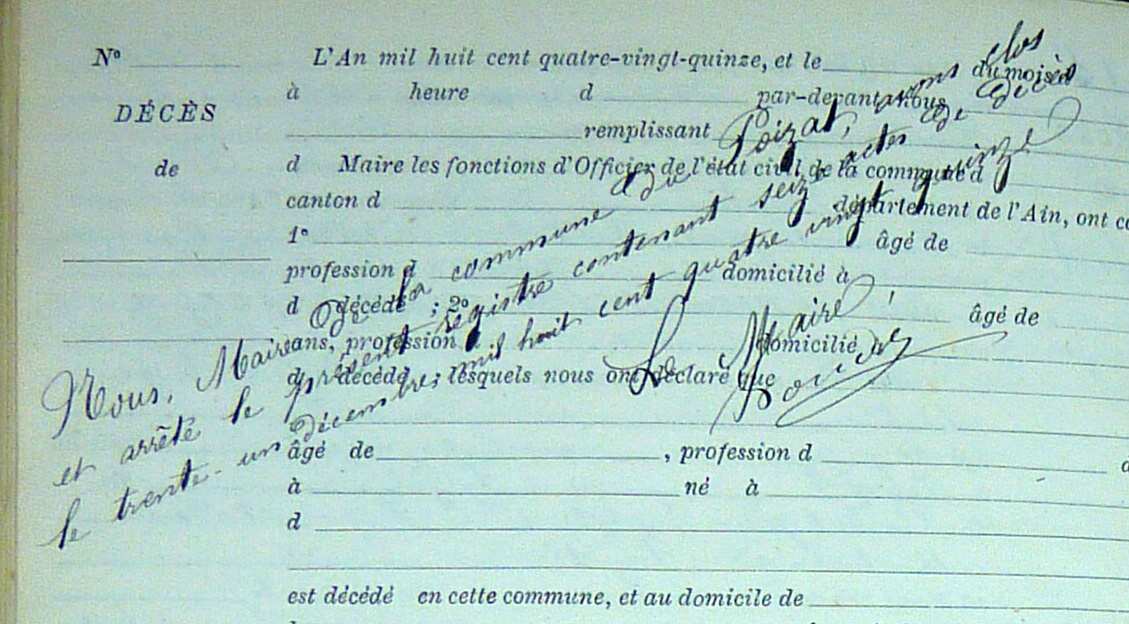 N° L'An mil huit cent quatre-vingt-quinze, et le du mois d
DÉCÈS
de
à heure d par-devant nous
remplissant
d Maire les fonctions d'Officier de l'état civil de la commune d
canton d département de l'Ain, ont
1° âgé de
profession d domicilié à
d décédé ; 2° âgé de
ans, profession d domicilié
d décédé ; lesquels nous ont déclaré que
âgé de , profession d
à né à
d
est décédé en cette commune, et au domicile de
Nous, Maire de la commune du Poizat, avons clos
et arrêté le présent registre contenant seize actes de décès
le trente-un décembre mil huit cent quatre vingt quinze
Le Maire,